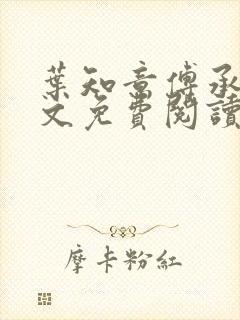 葉知章傅承
文免費閱讀
摩卡粉紅